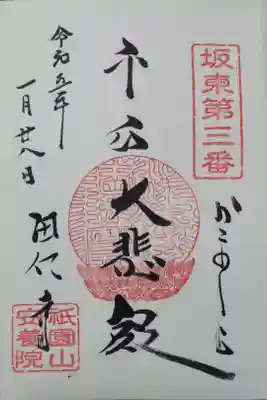 坂東第三番
かまくら
千手大悲殿
令和五年
一月廿八日
田代寺
祇園山
安養院